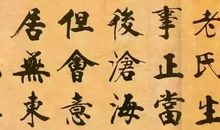 老民生
事正當
後滄海
但會意
居無東